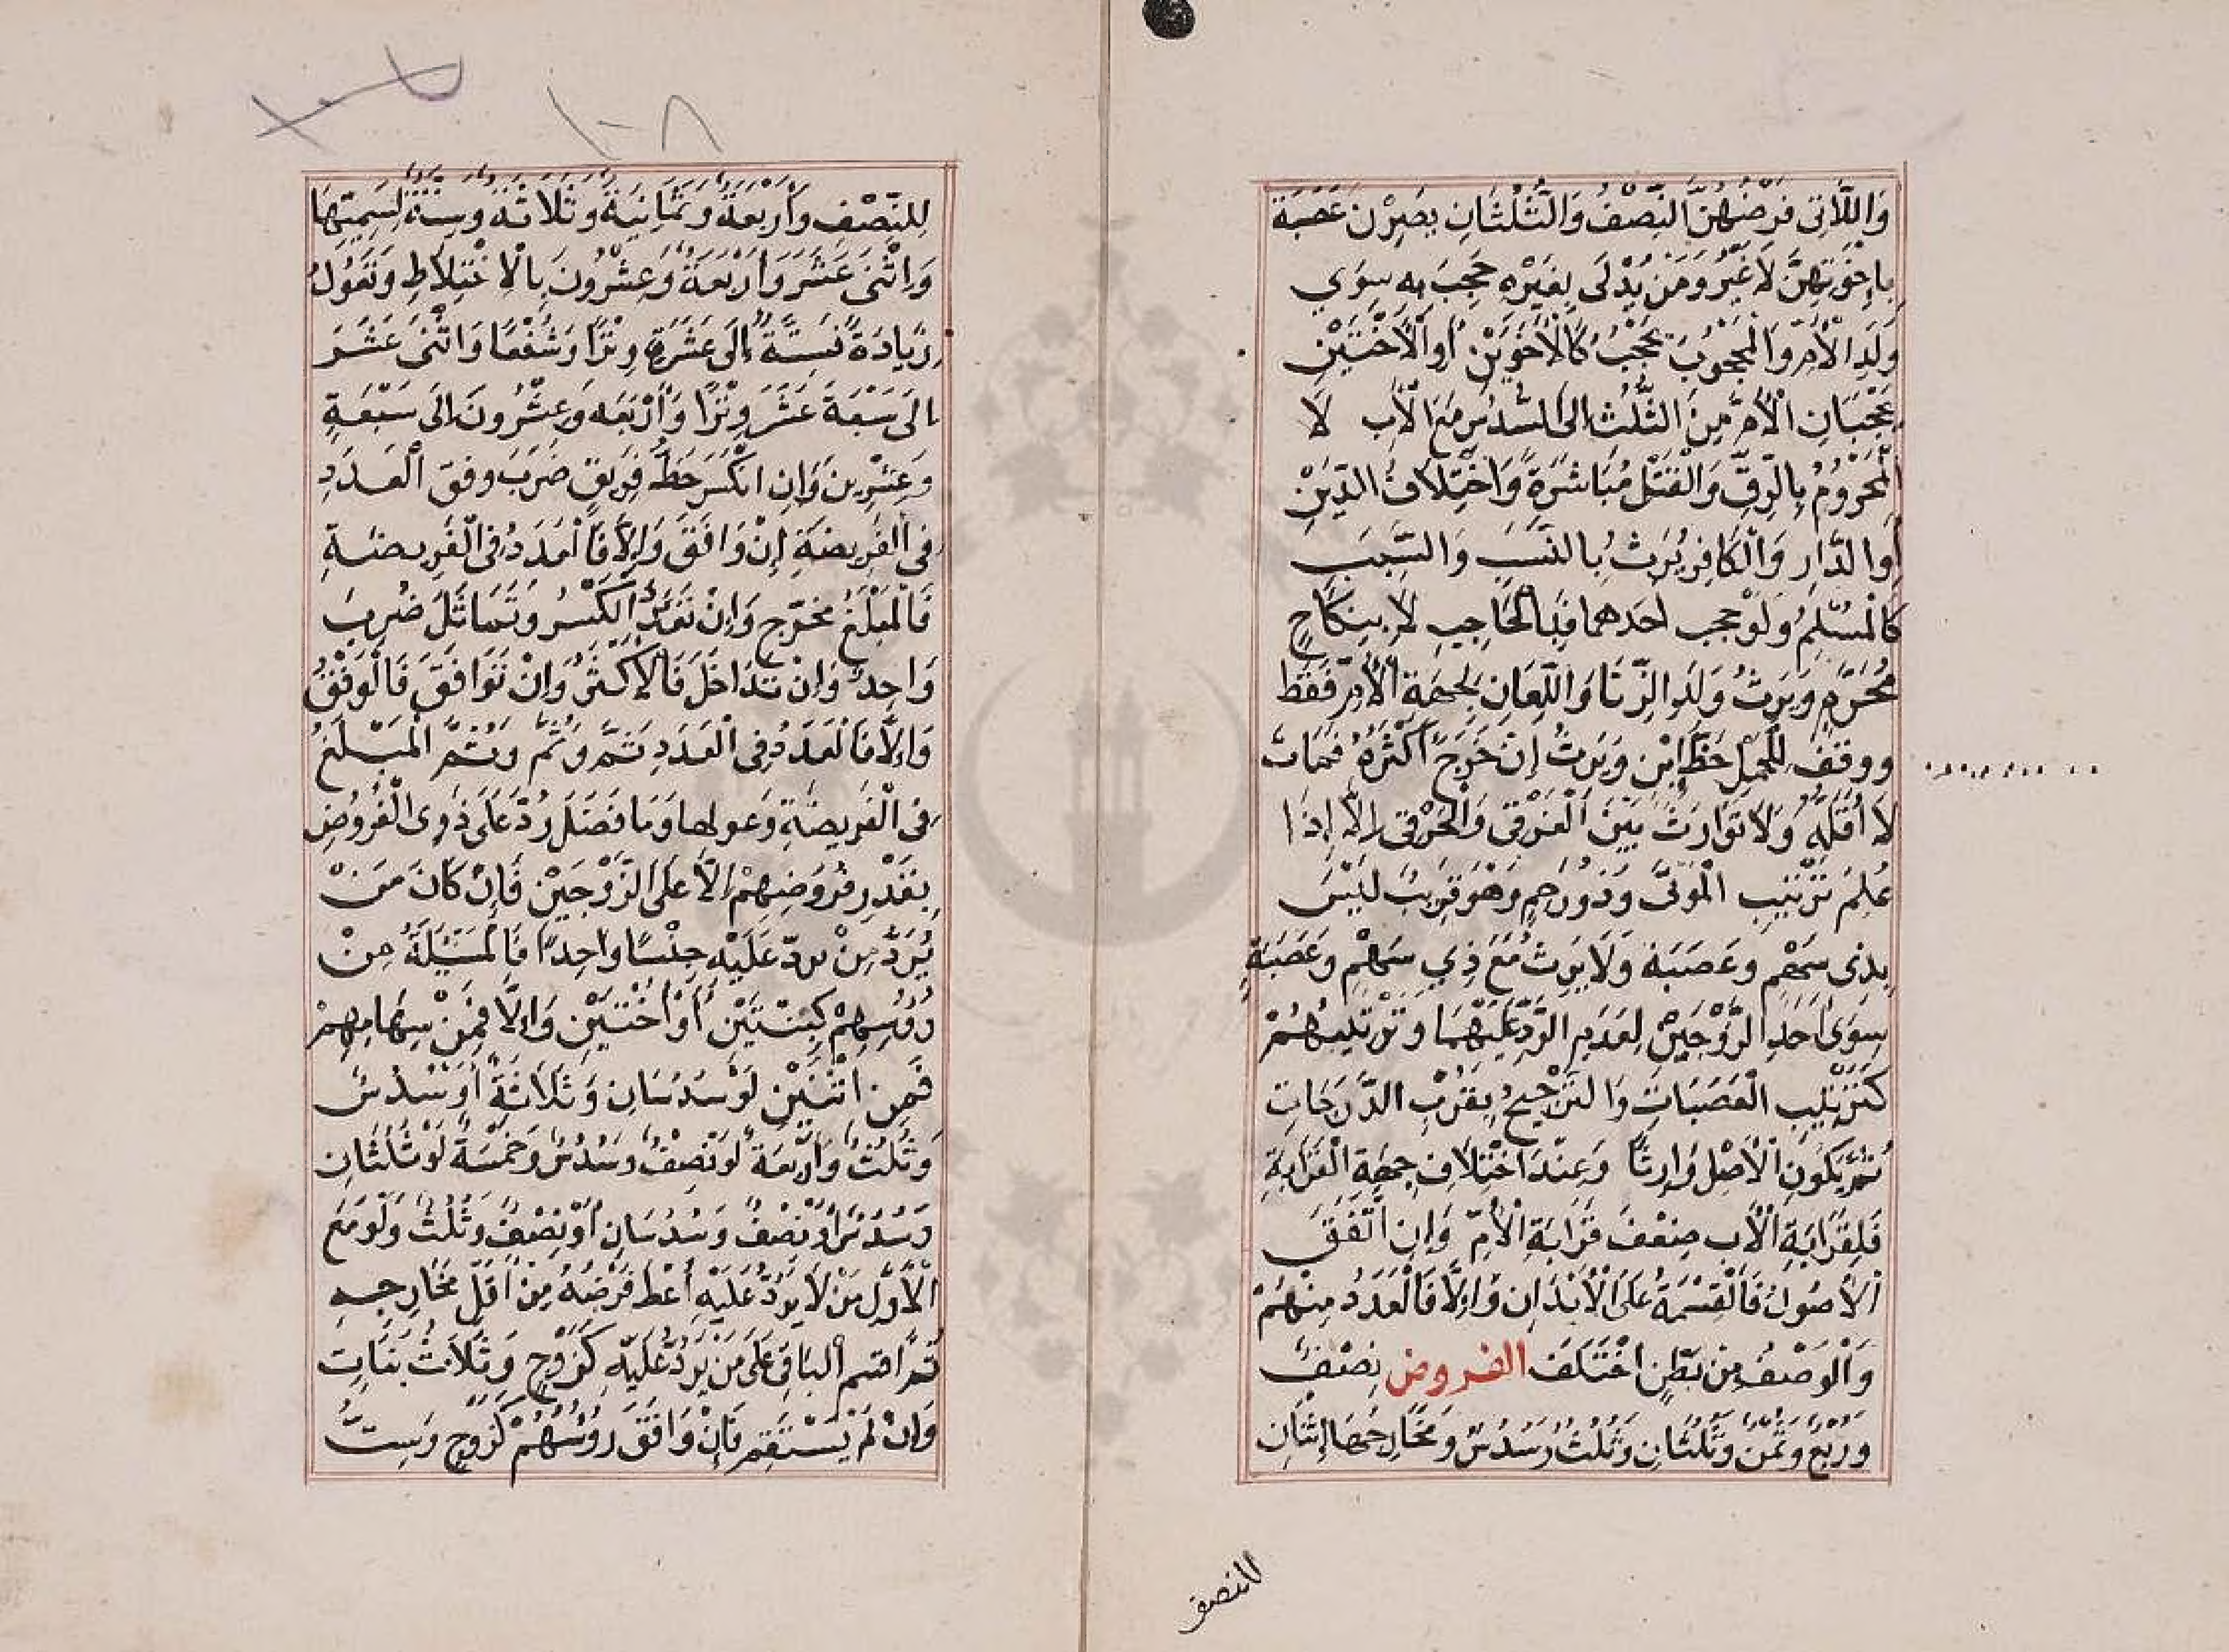 وَاللَّاتِى فَرْضُهُنَّ النِّصْفُ وَالثُّلُثَانِ يَصِرْنَ عَصَبَةً
بِإِخْوَتِهِنَّ لَا غَيْرُ وَمَنْ يُدْلَى بِغَيْرِهِ حُجِبَ بِهِ سِوَي
وَلَدِ الْأُمِّ وَالْمَحْجُوبُ يَحْجُبُ كَالْأَخَوَيْنِ أَوِ الْأُخْتَيْنِ
يَحْجُبَانِ الْأُمَّ مِنَ الثُّلُثِ إِلَى السُّدُسِ مَعَ الْأَبِ لَا
الْمَحْرُومُ بِالرِّقِّ وَالْقَتْلِ مُبَاشَرَةً وَاخْتِلَافُ الدِّيْنِ
أَوِ الدَّارِ وَالْكَافِرُ يَرِثُ بِالنَّسَبِ وَالسَّبَبِ
كَالْمُسْلِمِ وَلَوْ حجب أحدهما فَبِالْحَاجِبِ لَا بِنِكَاحٍ
مُحَرَّمٍ وَيَرِثُ وَلَدِ الزِّنَا وَاللِّعَانِ بِجِهَةِ الْأُمِّ فَقَطْ
وَوُقِفَ لِلْحَمْلِ حَظُّ ابْنٍ وَيَرِثُ إِنْ خَرَجَ أَكْثَرُهُ فَمَاتَ
لَا أَقَلُّهُ وَلَا تَوَارُثَ بَيْنَ الْغَرْقَى وَالْحَرْقَى إِلَّا إِذَا
عُلِمَ تَرْتِيبِ الْمَوْتَى وَذُو رَحِمٍ وَهُوَ قَرِيبٌ لَيْسَ
بِذِى سَهْمٍ وَعَصَبَةٍ وَلَا يَرِثُ مَعَ ذِي سَهْمٍ وَعَصَبَةٍ
سِوَى أَحَدِ الزَّوْجَيْنِ لِعَدَمِ الرَّدِّ عَلَيْهِمَا وَتَرْتِيبُهُمْ
كَتَرْتِيبِ الْعَصَبَاتِ وَالتَّرْجِيحُ بِقُرْبِ الدَّرَجَاتِ
ثُمَّ بِكَوْنِ الْأَصْلِ وَارِثًا وَعِنْدَ اخْتِلَافِ جِهَةِ الْقَرَابَةِ
فَلِقَرَابَةِ الْأَبِ ضِعْفَ قَرَابَةِ الْأُمِّ وَإِنِ اتَّفَقَ
الْأُصُولُ فَالْقِسْمَةُ عَلَى الْأَبْدَانِ وَإِلَّا فَالْعَدَدُ مِنْهُمْ
وَالْوَصْفُ مِنْ بَطْنٍ اخْتَلَفَ الفروض نِصْفٌ
وَرُبْعٌ وَثُمُنٌ وَثُلُثَانِ وَثُلُثٌ وَسُدُسٌ وَمَخَارِجُهَا إِثْنَانِ
للنصف
١٠٨
لِلنِّصْفِ وَأَرْبَعَةٌ وَثَمَانِيَةٌ وَثَلَاثَةٌ وَسِتَّةٌ لِسَمِيِّهَا
وَاثْنَى عَشَرَ وَأَرْبَعَةٌ وَعِشْرُونَ بِالْاخْتِلَاطِ وَتَعُولُ
زِيَادَةً فَسِتَّةٌ إِلَى عَشَرَةٍ وِتْرًا وَشَفْعًا وَاثْنَى عَشَرَ
إِلَى سَبْعَةَ عَشَرَ وِتْرًا وَأَرْبَعَه وَعِشْرُونَ إِلَى سَبْعَةٍ
وَعِشْرِينَ وَإِنِ انْكَسَرَ حَظُّ فَرِيقٍ ضَرَبَ وفق الْعَدَدِ
فِى الْفَرِيضَةِ إِنْ وَافَقَ وَإِلَّا فَالْعَدَدُ فِى الْفَرِيضَةِ
فَالْمَبْلَغُ مَخْرَجٌ وَإِنْ تَعَدَّدَ الْكَسْرُ وَتَمَاثَلَ ضُرِبَ
وَاحِدٌ وَإِنْ تَدَاخَلَ فَالْأَكْثَرُ وَإِنْ تَوَافَقَ فَالْوَفْقُ
وَإِلَّا فَالْعَدَدُ فِى الْعَدَدِ ثُمَّ وَثُمَّ وَثُمَّ الْمَبْلَغُ
فِى الْفَرِيضَةِ وَعولها وَمَا فَضَلَ رُدَّ عَلَى ذَوِى الْفُرُوضِ
بِقَدْرِ فُرُوضِهِمْ إِلَّا عَلَى الزَّوْجَيْنِ فَإِنْ كَانَ مَنْ
يُرَدُّ مِنْ يردّ عَلَيْهِ جِنْسًا وَاحِدًا فَالْمَسْئَلَةُ مِنْ
رُؤُسِهِمْ كَبِنْتَيْنِ أَوْ أُخْتَيْنِ وَإِلَّا فَمِنْ سِهَامِهِمْ
فَمِنِ اثْنَيْنِ لَوْ سُدُسَانِ وَثَلَاثَةٌ أَوْ سُدُسٌ
وَثُلُثٌ وَأَرْبَعَةٌ لَوْ نِصْفٌ وَسُدُسٌ وَخَمْسَةٌ لَوْ ثُلُثَانِ
وَسُدُسٌ أَوْ نِصْفٌ وَسُدُسَانِ أَوْ نِصْفٌ وَثُلُثٌ وَلَوْ مَعَ
الْأَوَّلِ مَنْ لَا يُرَدُّ عَلَيْهِ أُعْطِ فَرْضَهُ مِنْ أَقَلِّ مَخَارِجِهِ
ثُمَّ اقسم الْبَاقِي عَلَى مَنْ يُرَدُّ عَلَيْهِ كَزَوْجٍ وَثَلَاثُ بَنَاتٍ
وَإِنْ لَمْ يَسْتَقِمْ فَإِنْ وَافَقَ رُؤُسُهُمْ كَزَوْجٍ وَسِتُّ